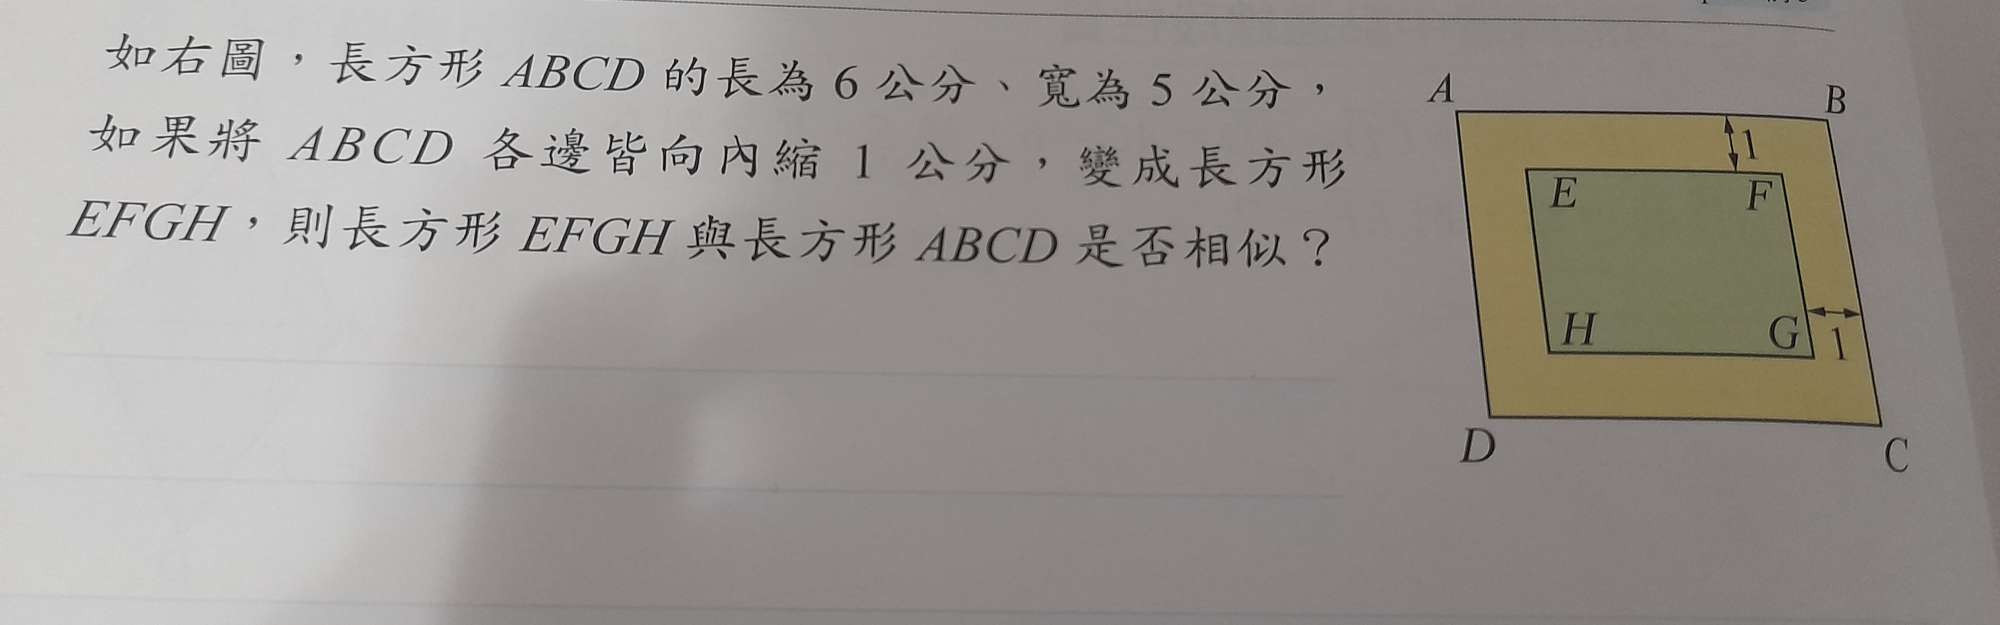 如右圖，長方形 ABCD 的長為 6 公分、寬為 5 公分，
如果將 ABCD 各邊皆向內縮 1 公分，變成長方形
EFGH，則長方形 EFGH 與長方形 ABCD 是否相似？
A
B
1
E
F
H
G
1
D
C